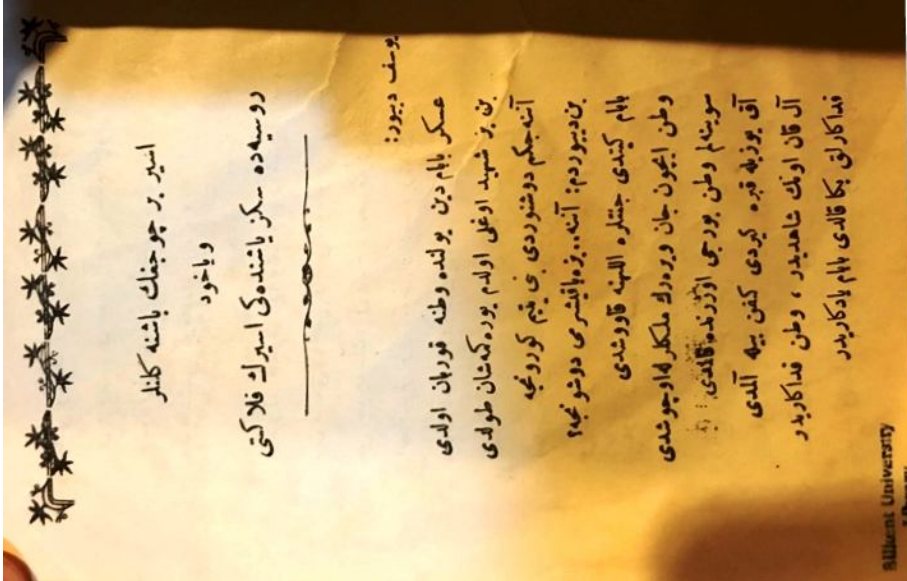 اسير بر چوجغك باشنه كلنلر
وياخود
روسيه‌ده سكز ياشنده‌كى اسيرك فلاكتى
يوسف دييور:
عسكر بابام دين يولنده وطنه قوربان اولدى
بن بر شهيد اوغلى اولدم يوره‌كمه شان طولدى
آنه‌جكم دوشنوردى بنى يتيم كورونجه
بن دييوردم: آنه.. بزه ياقيشيرمى دوشونجه؟
بابام كيتدى جنتلره اللهينه قاووشدى
وطن ايچون جان ويره‌رك ملكلرله اوچوشدى
سوينه‌لم وطن بورجى اوزرنده قالمدى
آق يوزيله قبره كيردى كفن بيله آلمدى
آل قان اونك شاهديدر ، وطن فداكاريدر
فداكارلق بكا قالدى بابام يادكاريدر
Bilkent University